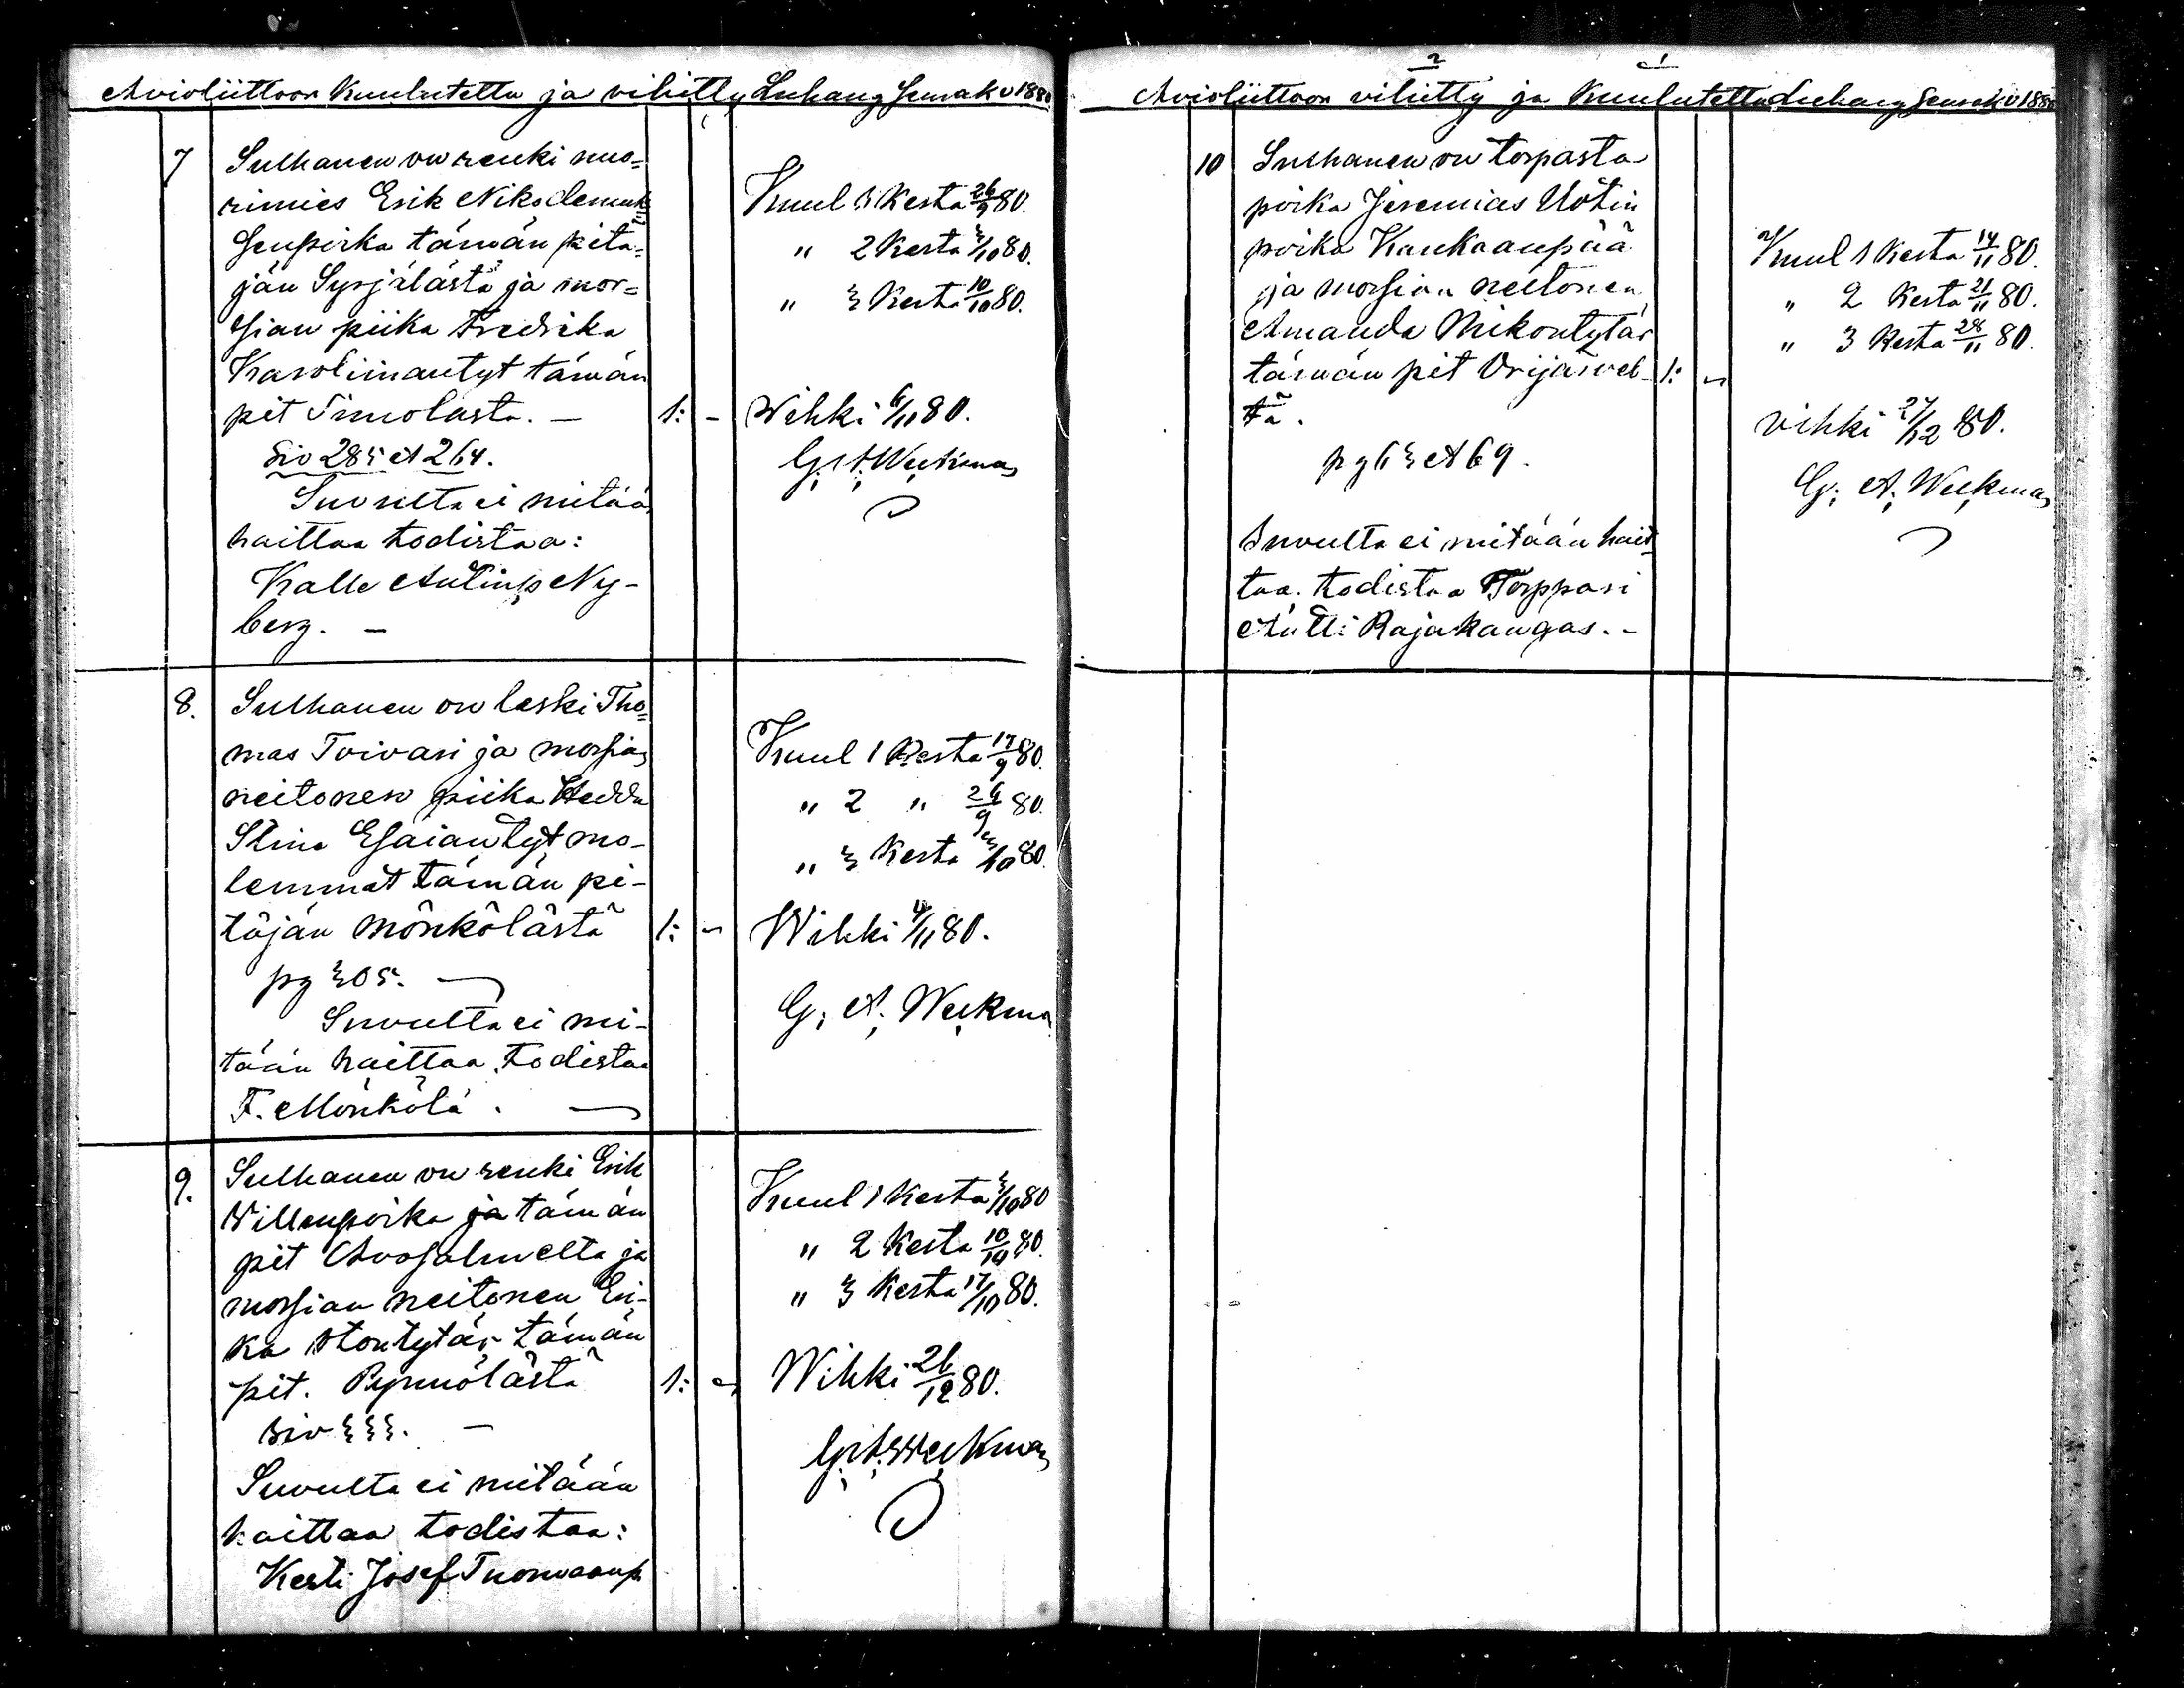 Avioliittoon Kuulutettu ja vihitty Luhang Seurak v 1880
7 Sulhanen on renki nuo=
rimies Erik Nikodemuk=
senpoika tämän pitä=
jän Syrjälästä ja mor=
sian piika Fredrika
Karoliinantyt tämän
pit Timolasta. – 1: –
Siv 285 et 264.
Suvulta ei mitään
haittaa todistaa:
Kalle Antinp Ny-
berg. –
Kuul 1 Kerta 26/9 80.
" 2 Kerta 3/10 80.
" 3 Kerta 10/10 80.
Wihki 6/11 80.
G. A. Weckman
8. Sulhanen on leski Tho=
mas Toivari ja morsian
neitonen piika Hedda
Stina Esaiantyt mo-
lemmat tämän pi-
täjän Mönkölästä 1: –
pg 305. –
Suvulta ei mi-
tään haittaa todistaa
F. Mönkölä. –
Kuul 1 Kerta 19/9 80.
" 2 " 26/9 80.
" 3 Kerta 3/10 80.
Wihki /11 80.
G. A. Weckman
9. Sulhanen on renki Erik
Willenpoika ja tämän
pit Avosalmelta ja
morsian neitonen Eri-
ka tytär tämän
pit. Pynnölästä 1: –
Siv 333. –
Suvulta ei mitään
haittaa todistaa:
Kesti Josef Tuomaanp
Kuul 1 Kerta 3/10 80
" 2 Kerta 10/10 80.
" 3 Kerta 17/10 80.
Wihki 26/12 80.
G. A. Weckman
Avioliittoon vihitty ja Kuulutettu Luhang Seurak v 1880
10 Sulhanen on torpasta
poika Jeremias Uotin
poika Kaukaanpää
ja morsian neitonen
Amanda Mikontytär
tämän pit Orijärvel- 1: –
tä.
pg 63 et 69.
Suvulta ei mitään hait-
taa. todistaa Torppari
Antti Rajakangas. –
Kuul 1 Kerta 14/11 80.
" 2 Kerta 21/11 80.
" 3 Kerta 28/11 80.
vihki 27/12 80.
G. A. Weckman